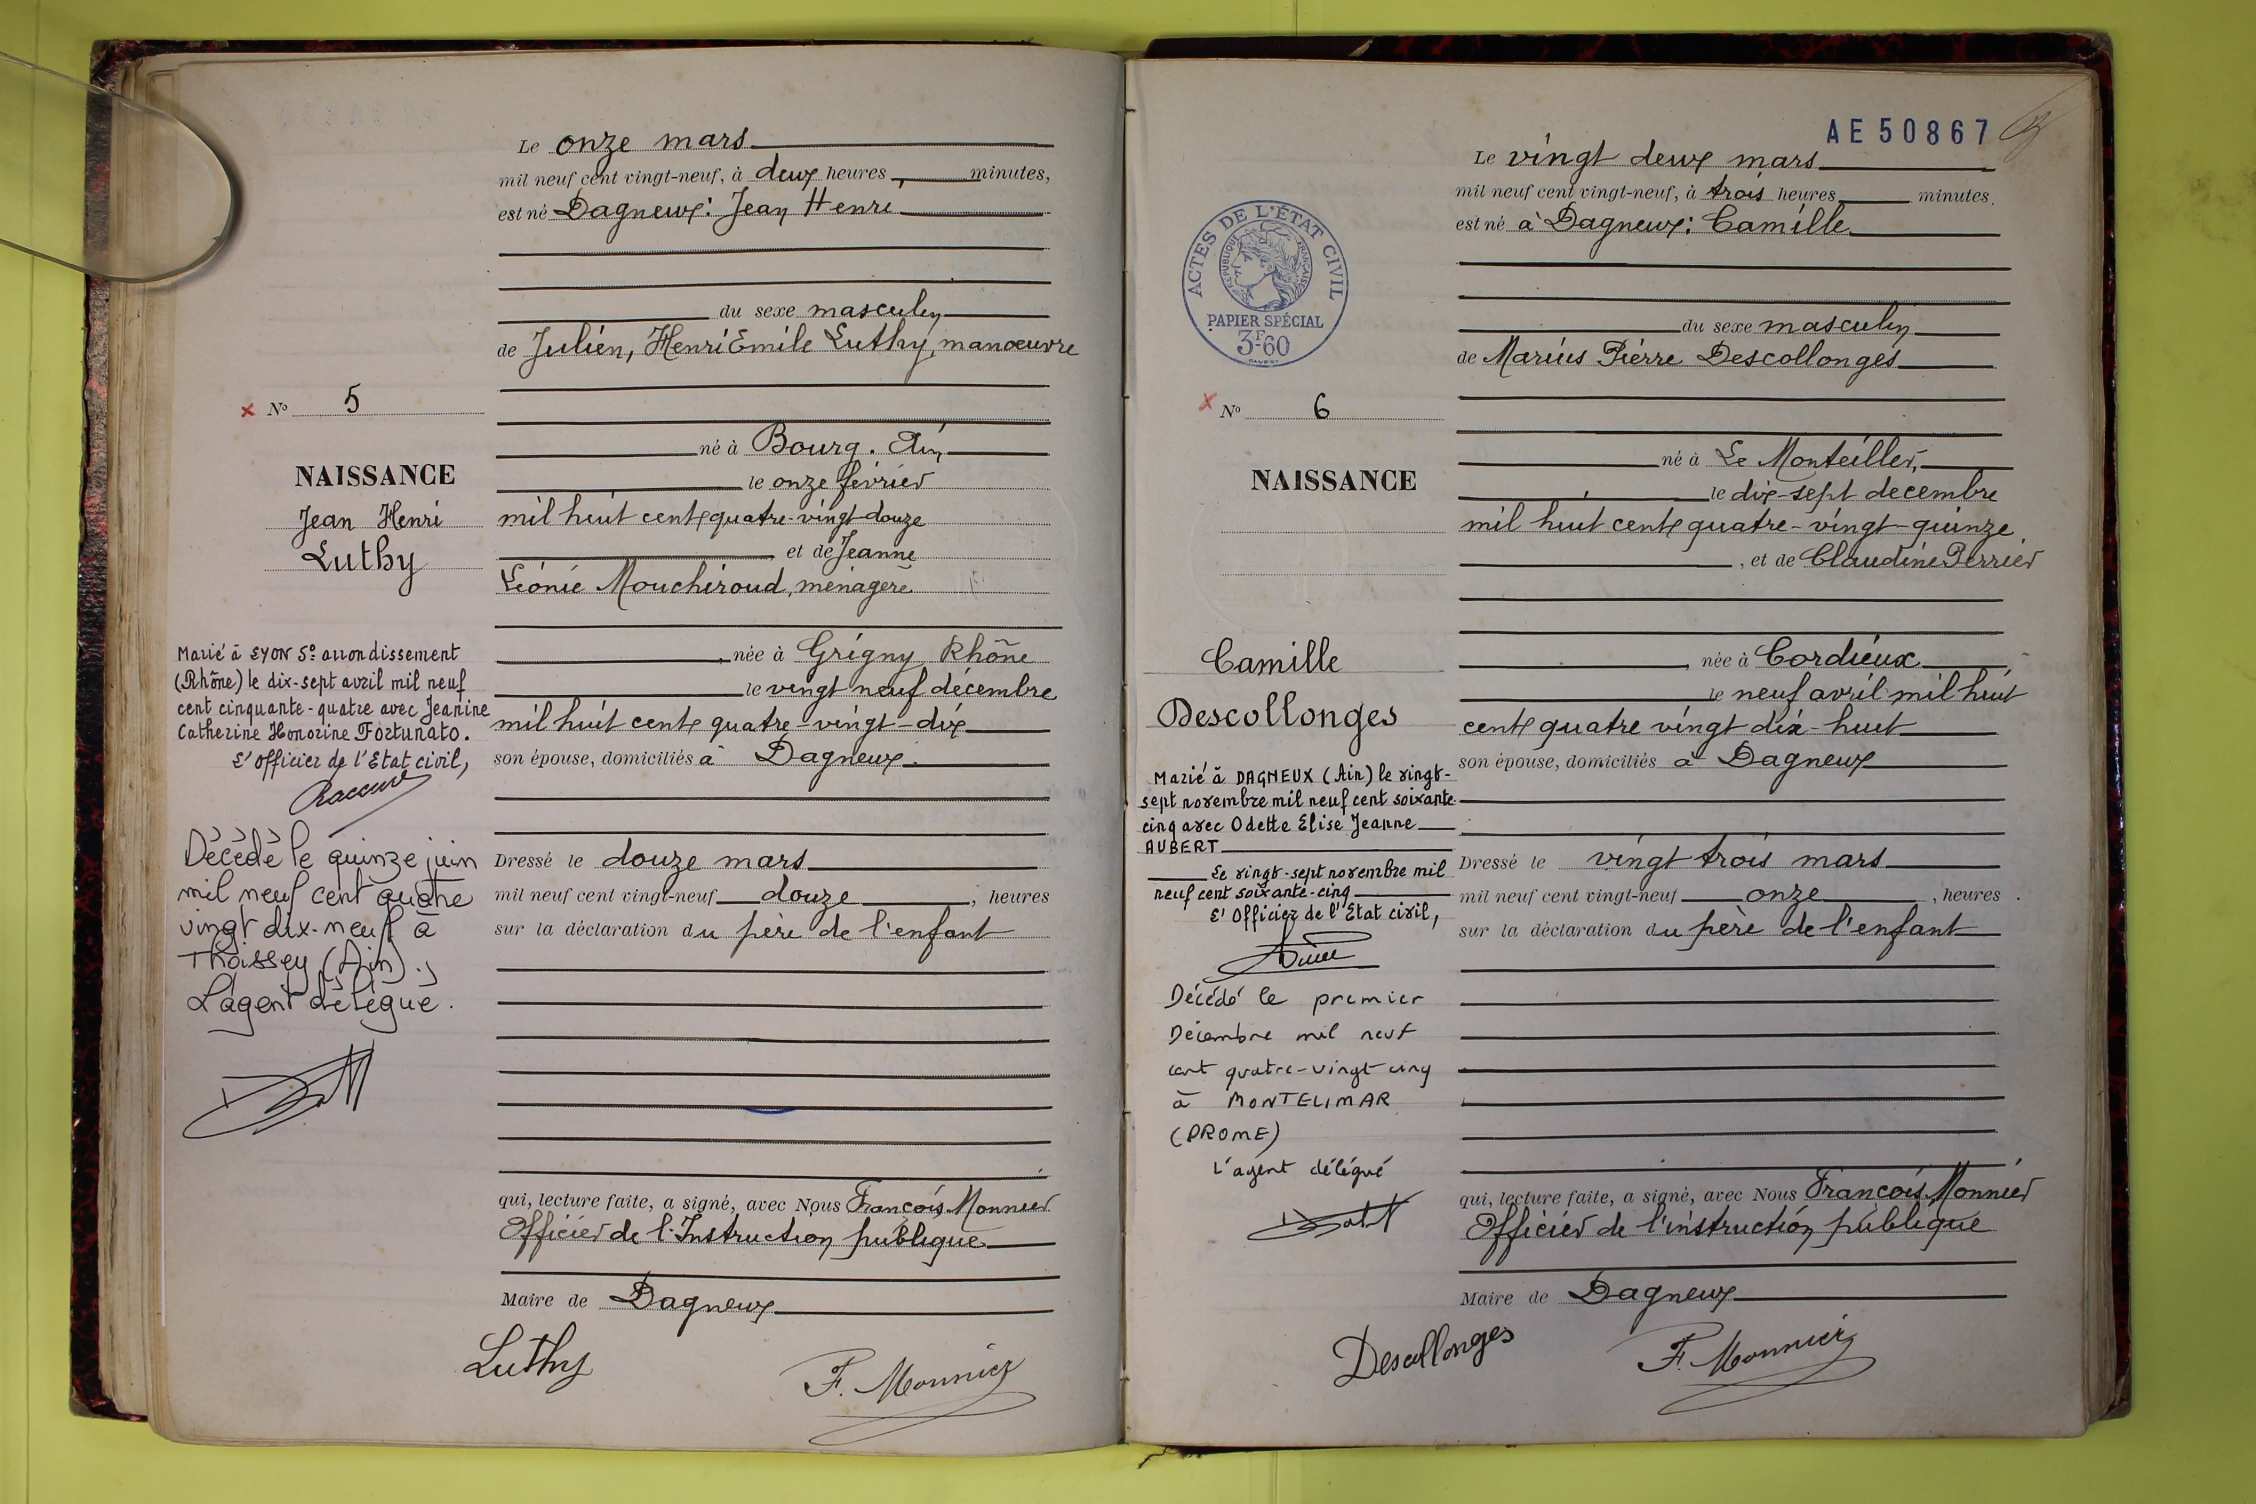 Le onze mars
mil neuf cent vingt-neuf, à deux heures, minutes,
est né Dagneux: Jean Henri
du sexe masculin
de Julien, Henri Emile Luthy, manoeuvre
né à Bourg. Ain
le onze février
mil huit cent quatre-vingt-douze
et de Jeanne
Léonie Mouchiroud, ménagère
née à Grigny Rhône
le vingt neuf décembre
mil huit cent quatre-vingt-dix
son épouse, domiciliés à Dagneux.
Dressé le douze mars
mil neuf cent vingt-neuf douze, heures
sur la déclaration du père de l'enfant
qui, lecture faite, a signé, avec Nous François Monnier
Officier de l'Instruction publique
Maire de Dagneux
Luthy
F. Monnier
N° 5
NAISSANCE
Jean Henri
Luthy
Marié à LYON 5e arrondissement
(Rhône) le dix-sept avril mil neuf
cent cinquante-quatre avec Jeanine
Catherine Honorine Fortunato.
L'Officier de l'Etat civil,
Décédé le quinze juin
mil neuf cent quatre
vingt dix-neuf à
Thoissey (Ain).
L'agent délégué.
AE 50867
Le vingt deux mars
mil neuf cent vingt-neuf, à trois heures minutes.
est né à Dagneux: Camille
du sexe masculin
de Marius Pierre Descollonges
né à Le Monteiller,
le dix-sept decembre
mil huit cent quatre-vingt-quinze
, et de Claudine Perrier
née à Cordieux
le neuf avril mil huit
cent quatre vingt dix-huit
son épouse, domiciliés à Dagneux
Dressé le vingt trois mars
mil neuf cent vingt-neuf onze, heures.
sur la déclaration du père de l'enfant
qui, lecture faite, a signé, avec Nous François Monnier
Officier de l'instruction publique
Maire de Dagneux
Descollonges
F. Monnier
ACTES DE L'ÉTAT CIVIL
RÉPUBLIQUE FRANÇAISE
PAPIER SPÉCIAL
3F-60
N° 6
NAISSANCE
Camille
Descollonges
Marié à DAGNEUX (Ain) le vingt-
sept novembre mil neuf cent soixante-
cinq avec Odette Elise Jeanne
AUBERT
Le vingt-sept novembre mil
neuf cent soixante-cinq
L'Officier de l'Etat civil,
Décédé le premier
Décembre mil neuf
cent quatre-vingt cinq
à MONTELIMAR
(DROME)
L'agent délégué